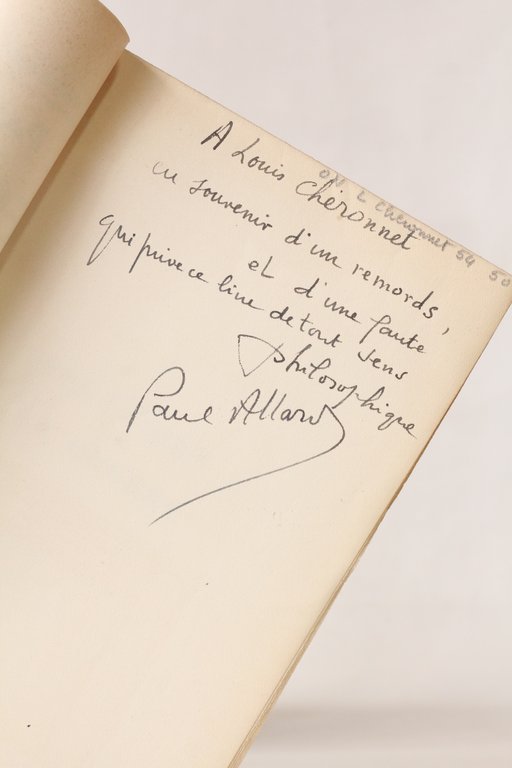 A Louis Chéronnet
en souvenir d'un remords,
et d'une faute
qui prive ce livre de tout sens
philosophique
Paul Allard
L Cheronnet 54 50